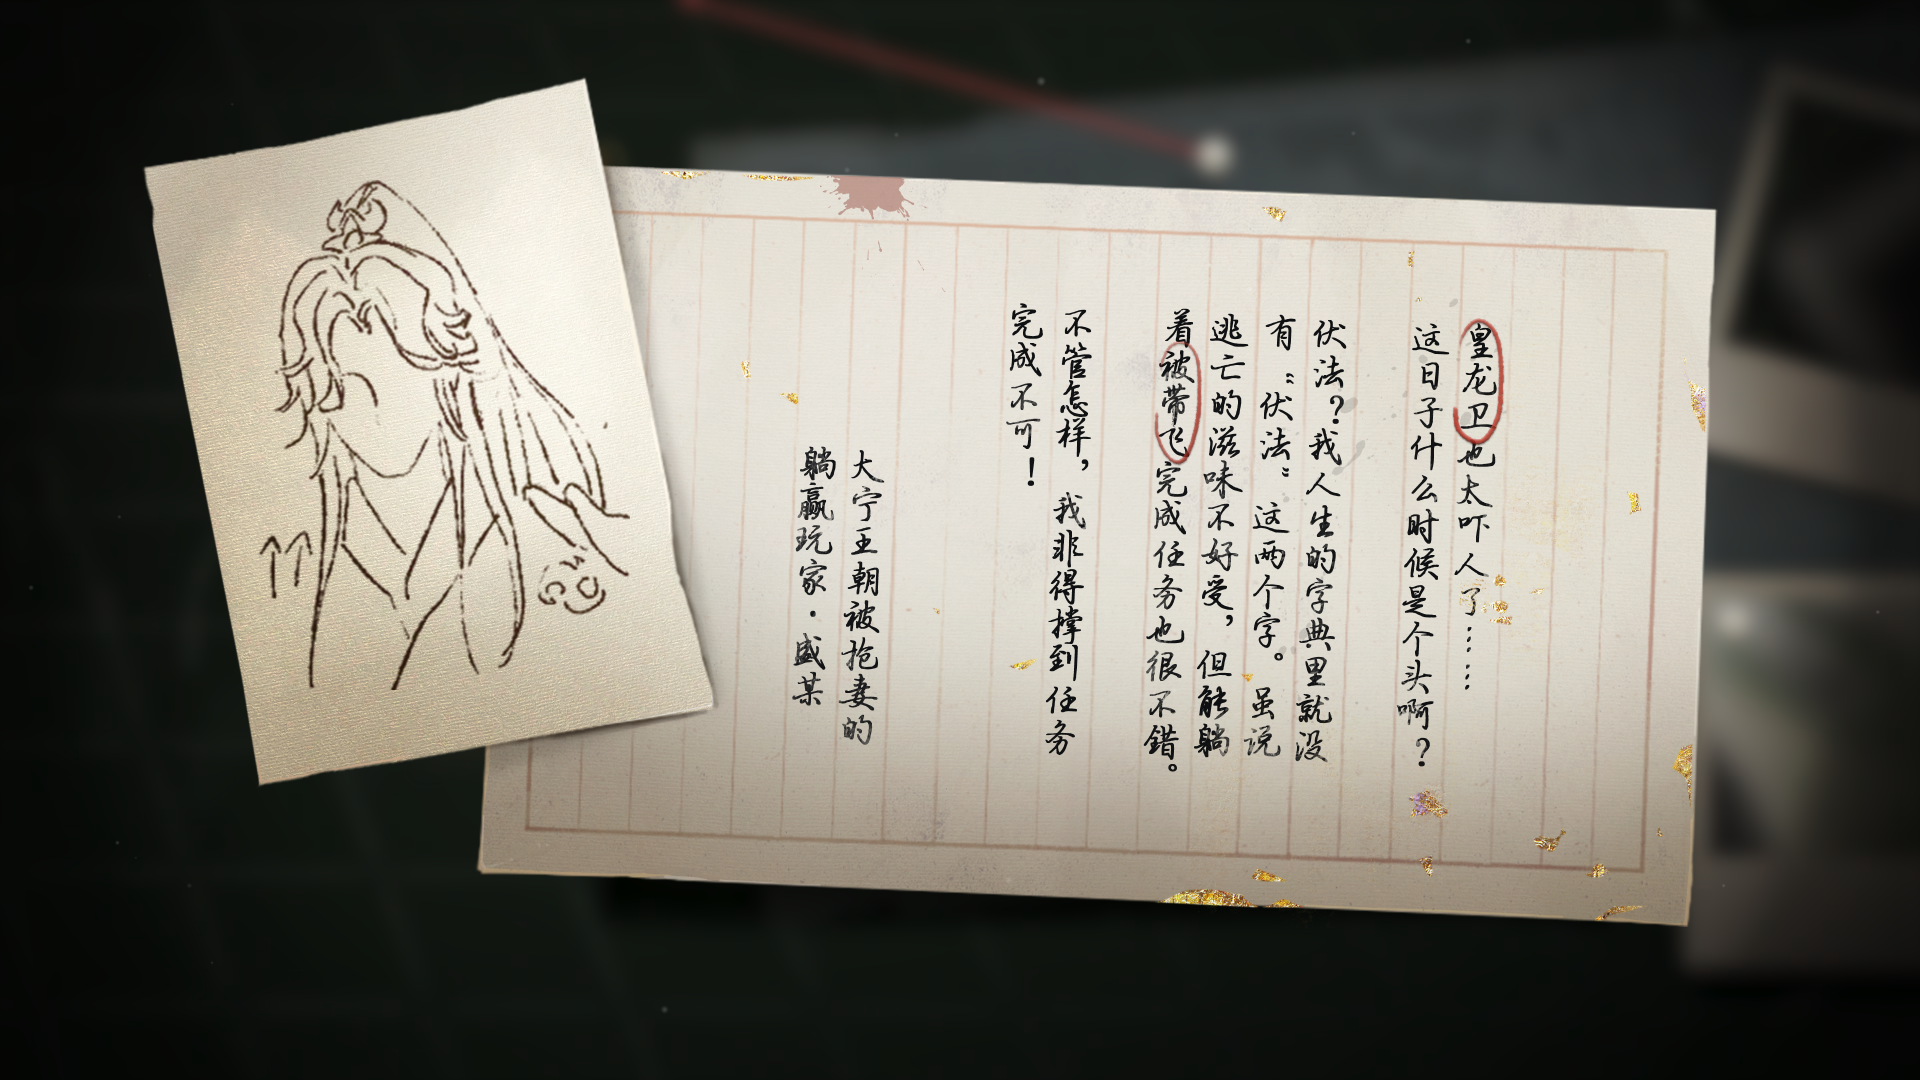 皇龙卫也太吓人了……
这日子什么时候是个头啊?
伏法?我人生的字典里就没
有“伏法”这两个字。虽说
逃亡的滋味不好受,但能躺
着被带飞完成任务也很不错。
不管怎样,我非得撑到任务
完成不可!
大宁王朝被抢妻的
躺赢玩家·盛某